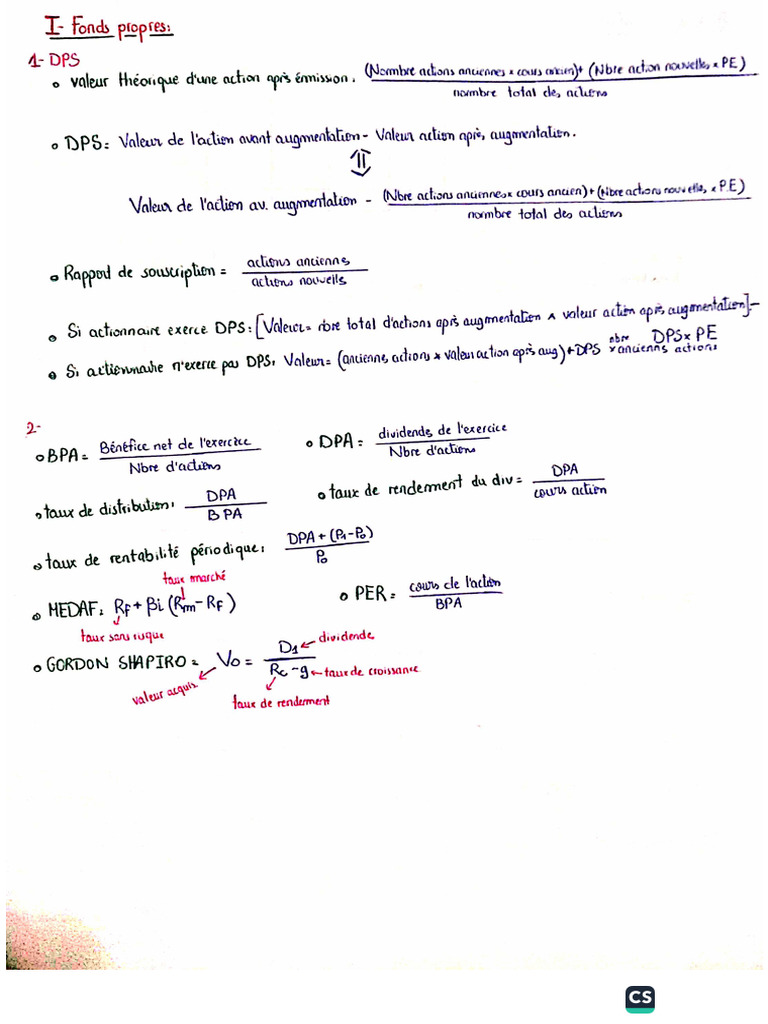 I- Fonds propres:
1- DPS
• valeur théorique d'une action après émission: (Nombre actions anciennes × cours ancien) + (Nbre action nouvelles × PE) / nombre total des actions
• DPS: Valeur de l'action avant augmentation - Valeur action après augmentation.
⇕
Valeur de l'action av. augmentation - (Nbre actions anciennes × cours ancien) + (Nbre actions nouvelles × P.E) / nombre total des actions
• Rapport de souscription = actions anciennes / actions nouvelles
• Si actionnaire exerce DPS: [Valeur = nbre total d'actions après augmentation × valeur action après augmentation] -
DPS × PE
• Si actionnaire n'exerce pas DPS: Valeur = (anciennes actions × valeur action après aug) + DPS × nbre anciennes actions
2-
• BPA = Bénéfice net de l'exercice / Nbre d'actions
• DPA: dividendes de l'exercice / Nbre d'actions
• taux de distribution: DPA / BPA
• taux de rendement du div = DPA / cours action
• taux de rentabilité périodique: DPA + (P1 - P0) / P0
taux marché
• MEDAF: RF + βi (Rm - RF)
• PER = cours de l'action / BPA
taux sans risque
• GORDON SHAPIRO = V0 = D1 / Rc - g
dividende
taux de croissance
valeur acquis
taux de rendement
CS